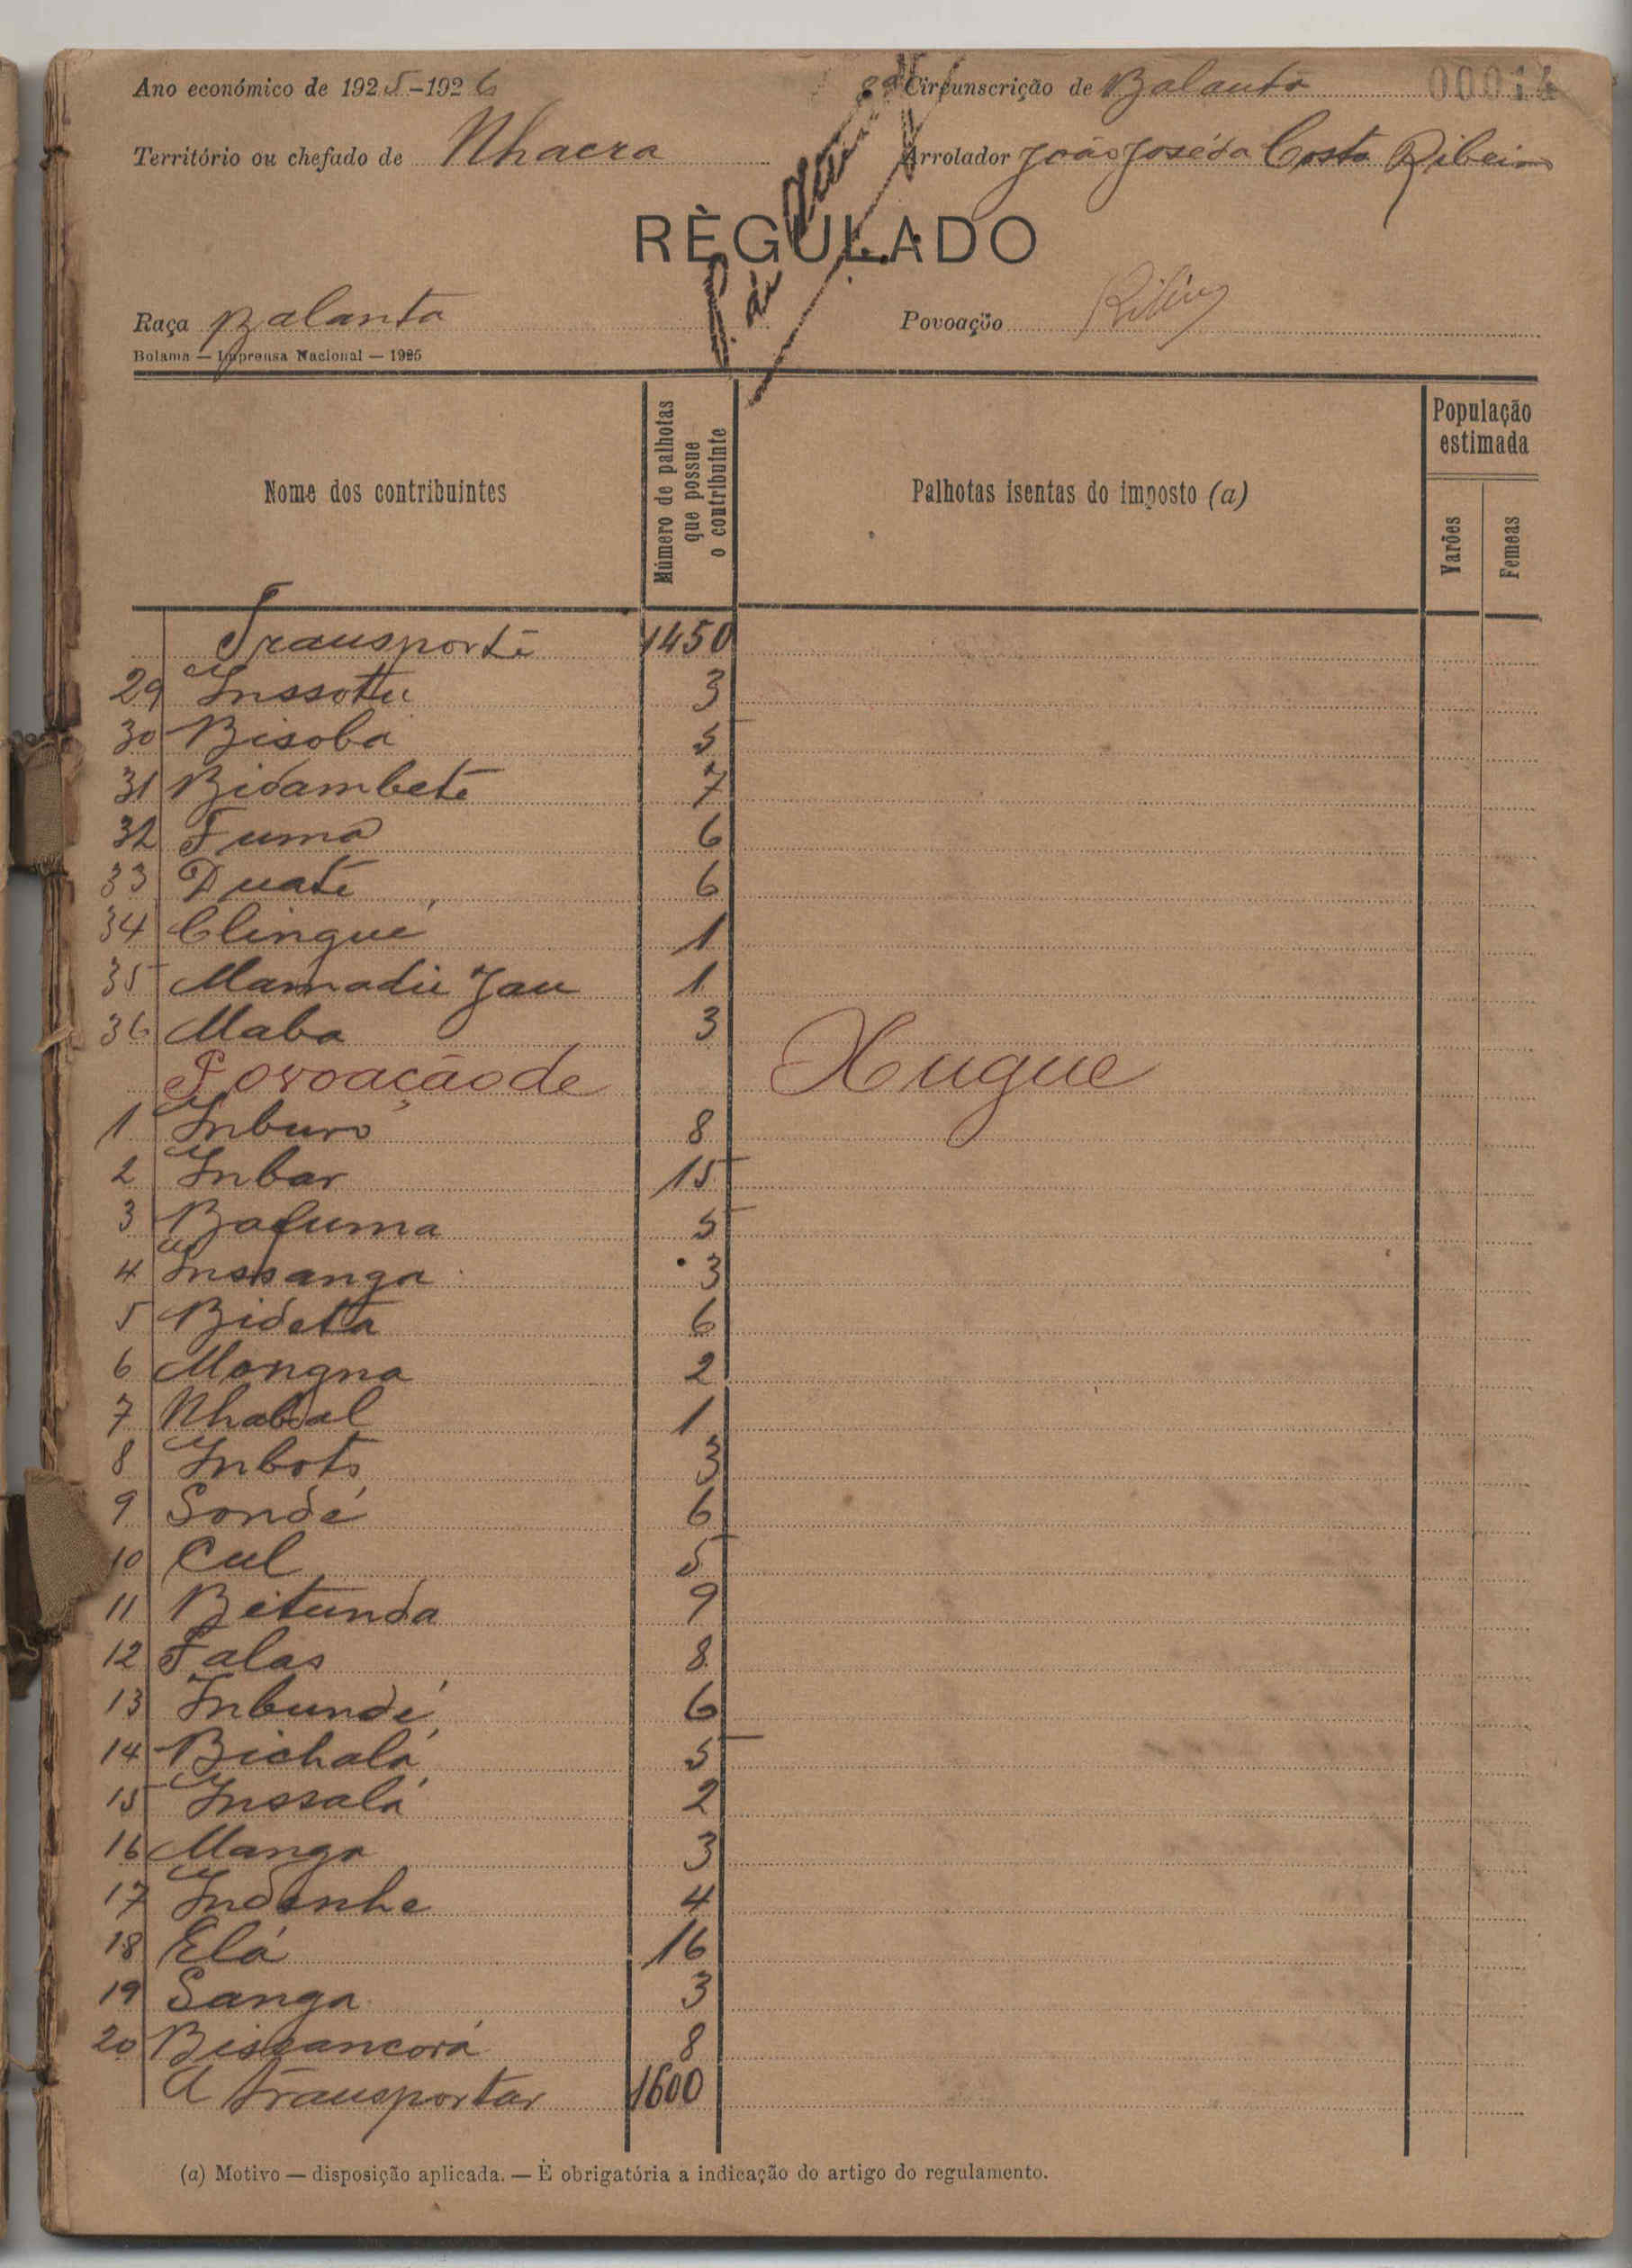 Ano económico de 1925-1926
Circunscrição de Balanta 00014
Território ou chefado de Nhacra
Arrolador João José da Costa Ribeiro
RÈGULADO
Raça Balanta
Povoação
Bolama — Imprensa Nacional — 1925
Nome dos contribuintes
Número de palhotas que possue o contribuinte
Palhotas isentas do imposto (a)
População estimada
Varões
Femeas
Transporte 1450
29 Inssottu 3
30 Bisoba 5
31 Bidambeté 7
32 Fuma 6
33 Duaté 6
34 Clingué 1
35 Mamadú Jau 1
36 Maba 3
Povoação de Xugue
1 Inburó 8
2 Inbar 15
3 Bafuma 5
4 Inssanga 3
5 Bideta 6
6 Mongna 2
7 Nhabal 1
8 Inboto 3
9 Sondé 6
10 Cul 5
11 Bitunda 9
12 Falas 8
13 Inbundé 6
14 Bichalá 5
15 Inssalá 2
16 Manga 3
17 Indenhe 4
18 Elá 16
19 Sanga 3
20 Bissancorá 8
A transportar 1600
(a) Motivo — disposição aplicada. — È obrigatória a indicação do artigo do regulamento.